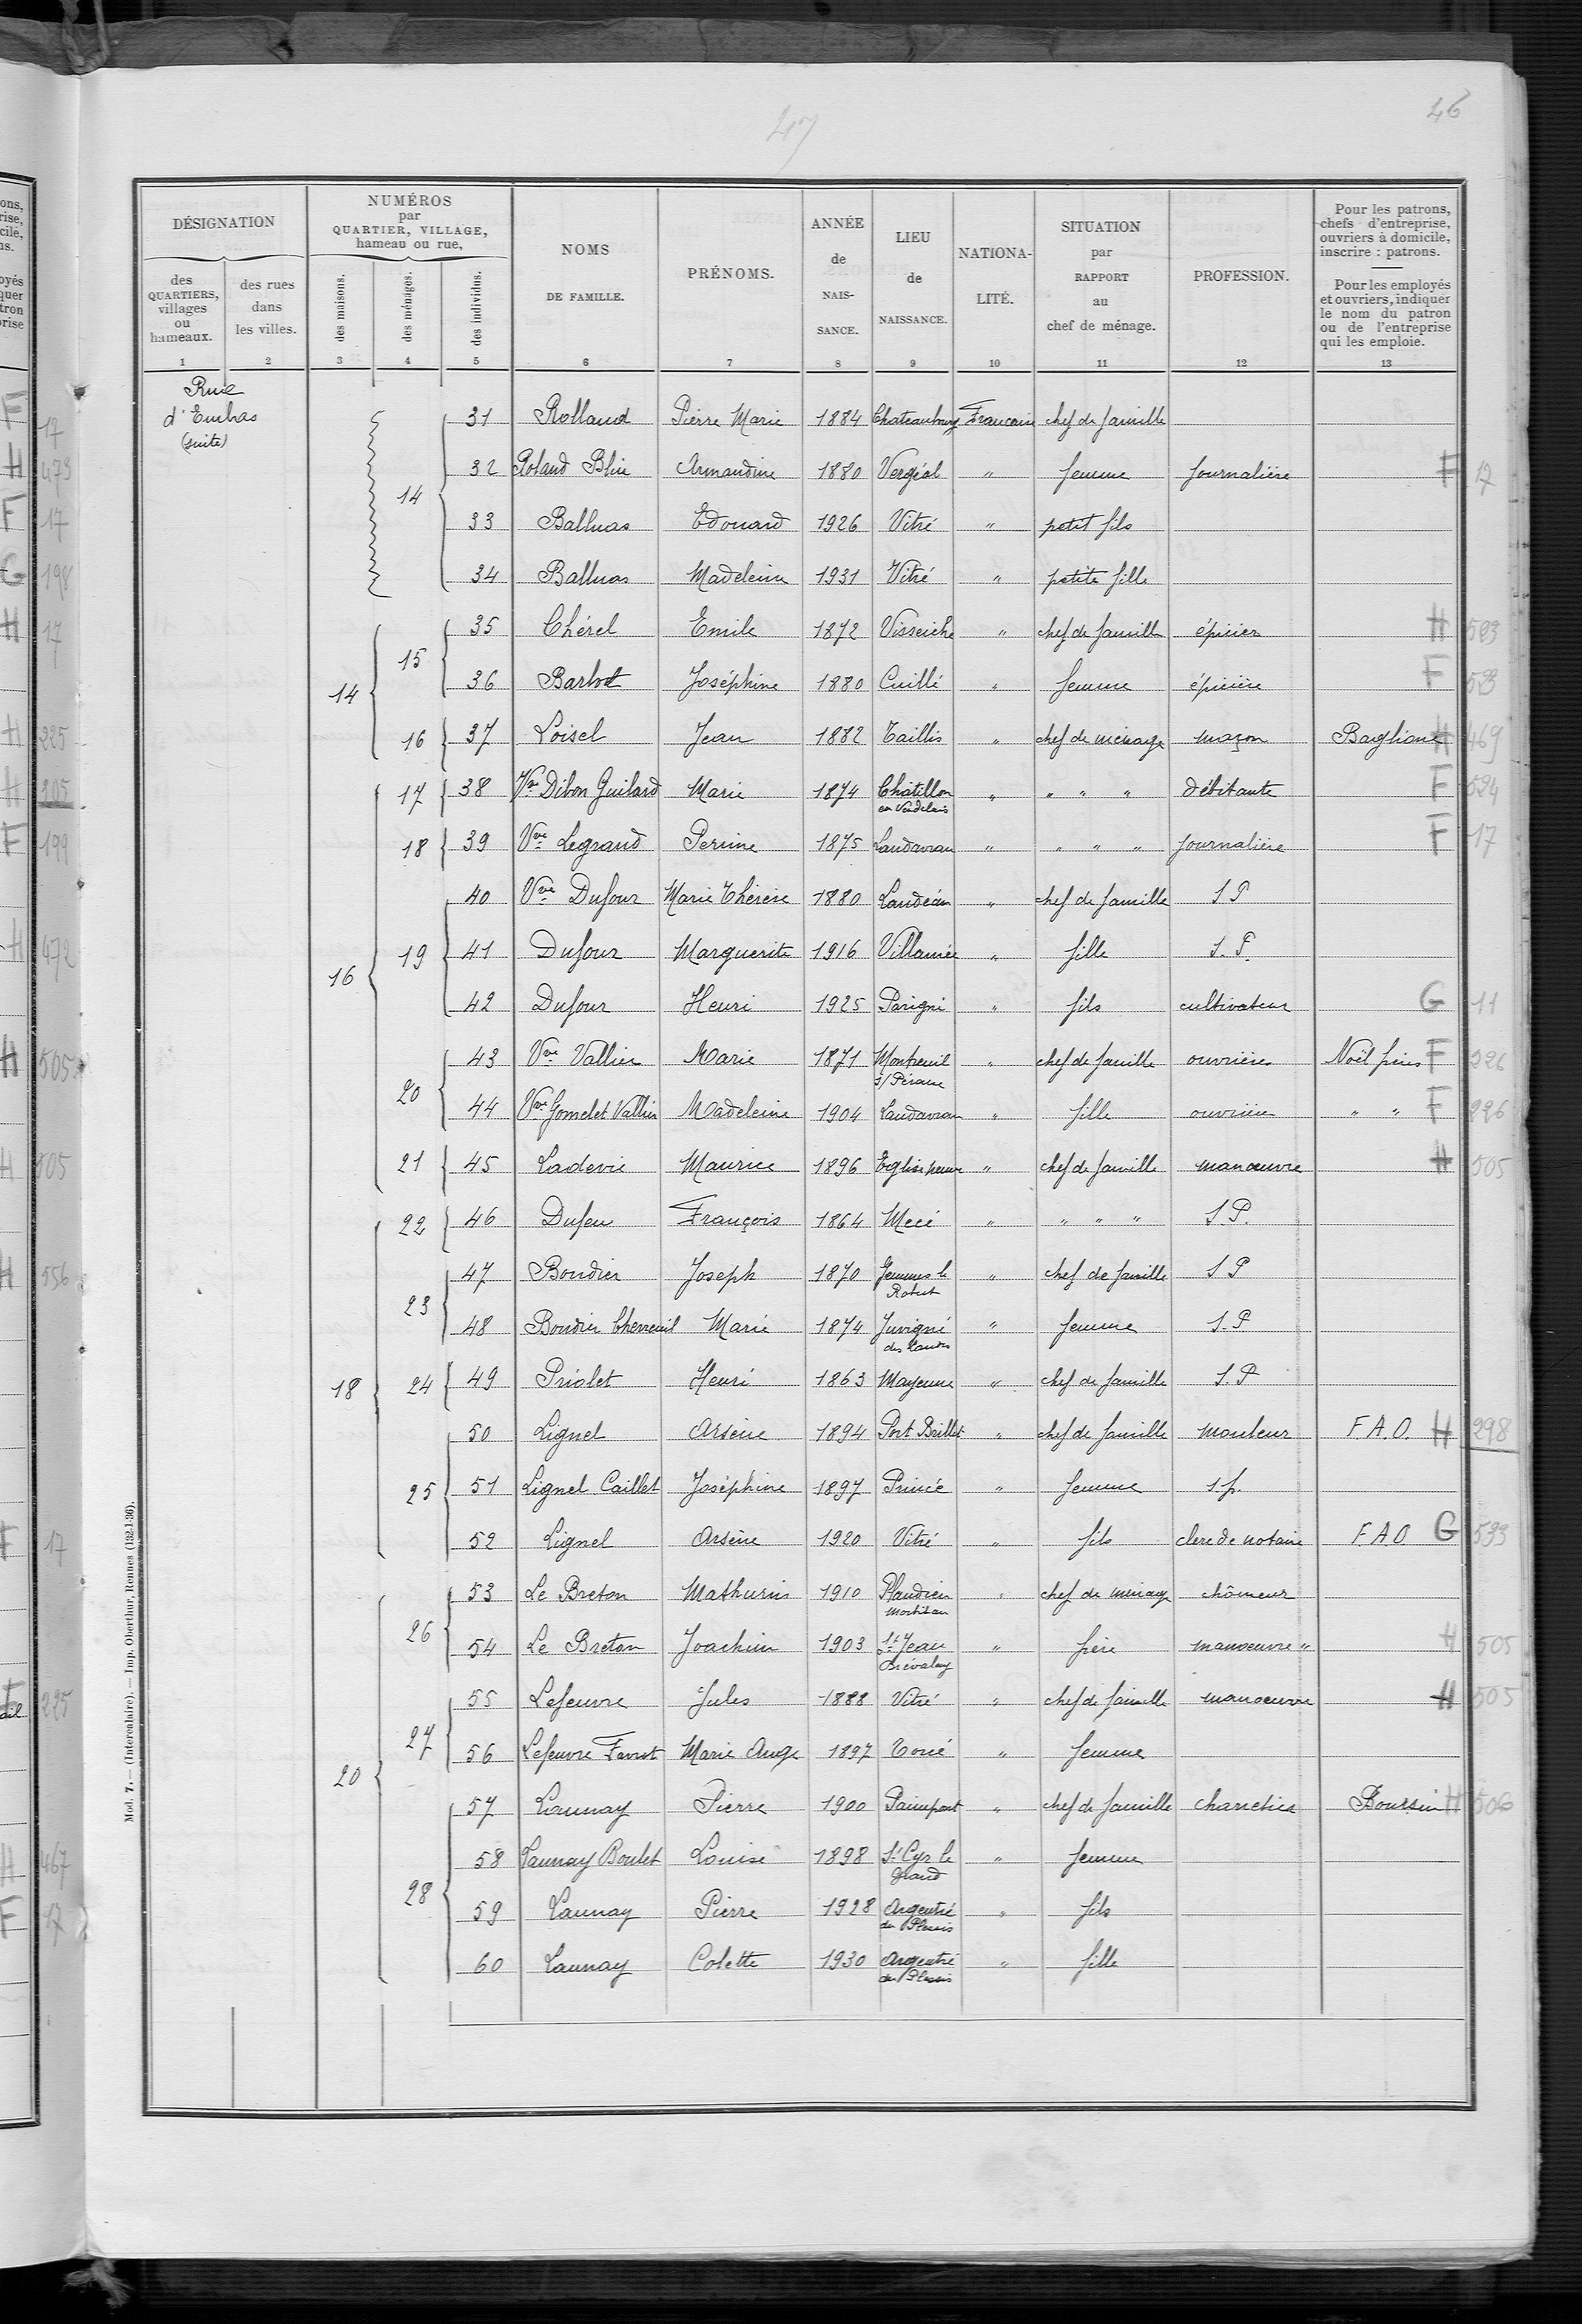 46
47
DÉSIGNATION
NUMÉROS
par
QUARTIER, VILLAGE,
hameau ou rue,
des
QUARTIERS,
villages
ou
hameaux.
des rues
dans
les villes.
des maisons.
des ménages.
des individus.
NOMS
DE FAMILLE.
PRÉNOMS.
ANNÉE
de
NAIS-
SANCE.
LIEU
de
NAISSANCE.
NATIONA-
LITÉ.
SITUATION
par
RAPPORT
au
chef de ménage.
PROFESSION.
Pour les patrons,
chefs d'entreprise,
ouvriers à domicile,
inscrire : patrons.
Pour les employés
et ouvriers, indiquer
le nom du patron
ou de l'entreprise
qui les emploie.
1 2 3 4 5 6 7 8 9 10 11 12 13
Rue
d'Embas
(suite)
31 Rolland Pierre Marie 1884 Chateaubourg Francaise chef de famille
14 32 Roland Blin Armandine 1880 Vergéal " femme journalière F 17
33 Balluas Edouard 1926 Vitré " petit fils
34 Balluas Madeleine 1931 Vitré " petite fille
14 15 35 Chérel Emile 1872 Visseiche " chef de famille épicier H 523
36 Barbot Joséphine 1880 Cuillé " femme épicière F 523
16 37 Loisel Jean 1882 Taillis " chef de ménage maçon Baglione H 469
16 17 38 Vve Dibon Guilard Marie 1874 Châtillon en Vendelais " " " " débitante F 524
18 39 Vve Legrand Perrine 1875 Landavran " " " " journalière F 17
19 40 Vve Dufour Marie Thérèse 1880 Landéan " chef de famille S P
41 Dufour Marguerite 1916 Villamée " fille S. P.
42 Dufour Henri 1925 Parigné " fils cultivateur G 11
20 43 Vve Vallier Marie 1871 Montreuil s/ Pérouse " chef de famille ouvrière Noël frères F 226
44 Vve Gomelet Vallier Madeleine 1904 Landavran " fille ouvrière " " F 226
21 45 Ladevie Maurice 1896 Eglise neuve " chef de famille manœuvre H 505
18 22 46 Dufeu François 1864 Mecé " " " " S. P.
23 47 Bourdier Joseph 1870 Gesmes le Robert " chef de famille S P
48 Bourdier Chevreuil Marie 1874 Juvigné des Landes " femme S. P
24 49 Priolet Henri 1863 Mayenne " chef de famille S. P
25 50 Lignel Arsène 1894 Port Brillet " chef de famille mouleur F. A. O. H 298
51 Lignel Caillet Joséphine 1897 Princé " femme s. p.
52 Lignel Arsène 1920 Vitré " fils clerc de notaire F. A O G 533
20 26 53 Le Breton Mathurin 1910 Plaudren Morbihan " chef de ménage chômeur
54 Le Breton Joachim 1903 St Jean Brévelay " frère manœuvre " H 505
27 55 Lefeuvre Jules 1888 Vitré " chef de famille manœuvre H 505
56 Lefeuvre Marie Ange 1897 Torcé " femme
28 57 Launay Pierre 1900 Paimpont " chef de famille charretier Boursin H 506
58 Launay Boulet Louise 1898 St Cyr le Grand " femme
59 Launay Pierre 1928 Argentré du Plessis " fils
60 Launay Colette 1930 Argentré du Plessis " fille
Mod. 7. — (Intercalaire). — Imp. Oberthur, Rennes (132-1-36).